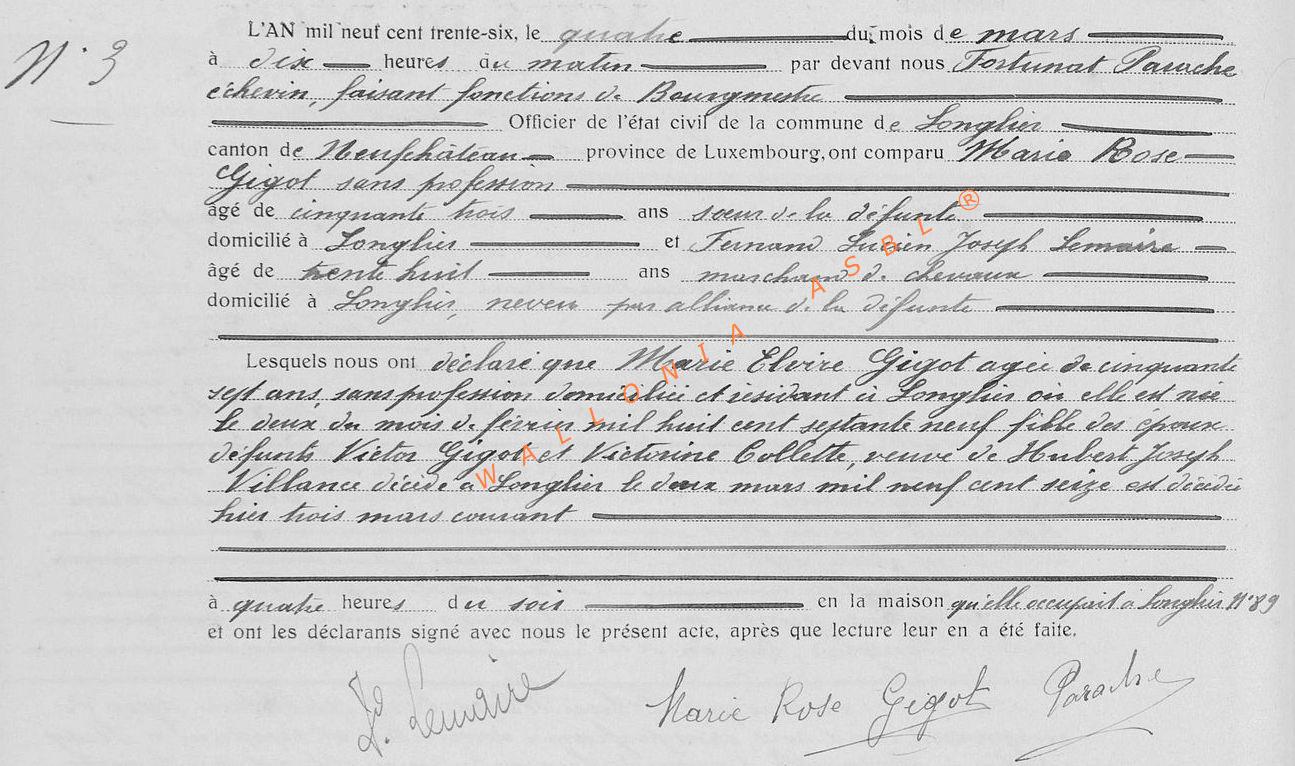 N° 3
L'AN mil neuf cent trente-six, le quatre du mois de mars
à dix heures du matin par devant nous Fortunat Parache
échevin, faisant fonctions de Bourgmestre
Officier de l'état civil de la commune de Longlier
canton de Neufchâteau province de Luxembourg, ont comparu Marie Rose
Gigot sans profession
âgé de cinquante trois ans sœur de la défunte
domicilié à Longlier et Fernand Lucien Joseph Lemaire
âgé de trente huit ans marchand de chevaux
domicilié à Longlier, neveu par alliance de la défunte
Lesquels nous ont déclaré que Marie Elvire Gigot agée de cinquante
sept ans, sans profession domiciliée et résidant à Longlier où elle est née
le deux du mois de février mil huit cent septante neuf fille des époux
défunts Victor Gigot et Victorine Collette, veuve de Hubert Joseph
Villance décédé à Longlier le deux mars mil neuf cent seize est décédée
hier trois mars courant
à quatre heures du soir en la maison qu'elle occupait à Longlier N° 89
et ont les déclarants signé avec nous le présent acte, après que lecture leur en a été faite.
Fd. Lemaire Marie Rose Gigot Parache
WALLONIA ASBL ®